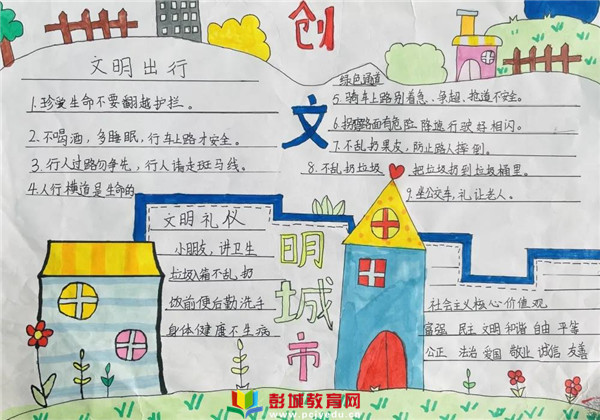 创
文
明
城
市
文明出行
1.珍爱生命不要翻越护拦。
2.不喝酒,多睡眠,行车上路才安全。
3.行人过路勿争先,行人请走斑马线。
4.人行横道是生命的
绿色通道
5.骑车上路别着急、争超、抢道不安全。
6.拐弯路面有危险 降速行驶好相闪。
7.不乱扔果皮,防止路人摔倒。
8.不乱扔垃圾 把垃圾扔到垃圾桶里。
9.坐公交车,礼让老人。
文明礼仪
小朋友,讲卫生
垃圾入箱不乱扔
饭前便后勤洗手
身体健康不生病
社会主义核心价值观
富强 民主 文明 和谐 自由 平等
公正 法治 爱国 敬业 诚信 友善
彭城教育网
www.pcjyedu.cn